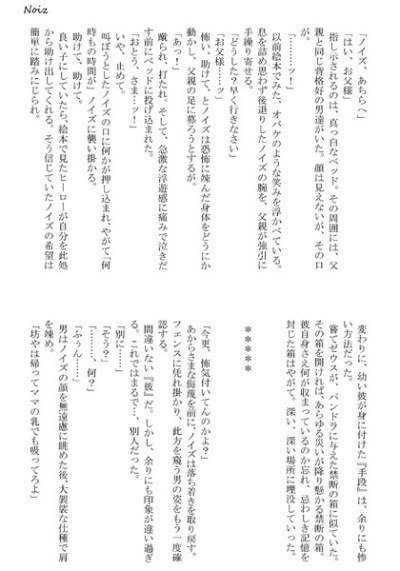 Noiz
「ノイズ、あちらへ」
「はい、お父様」
指し示されるのは、真っ白なベッド。その周囲には、父
親と同じ背格好の男達がいた。顔は見えないが、その口
が。
「………ッ！」
以前絵本でみた、オバケのような笑みを浮かべている。
息を詰め思わず後退りしたノイズの腕を、父親が強引に
手繰り寄せる。
「どうした？早く行きなさい」
「お父様……ッ」
怖い、助けて、とノイズは恐怖に竦んだ身体をどうにか
動かし、父親の足に募ろうとするが。
「あっ！」
蹴られ、打たれ。そして、急激な浮遊感に痛みで泣きだ
す前にベッドに投げ込まれた。
「おとう、さま…ッ！」
いや、止めて。
叫ぼうとしたノイズの口に何かが押し込まれ、やがて「何
時もの時間が」ノイズに襲い掛かる。
助けて、助けて。
良い子にしていたら、絵本で見たヒーローが自分を此処
から助け出してくれる。そう信じていたノイズの希望は
簡単に踏みにじられ。
変わりに、幼い彼が身に付けた『手段』は、余りにも惨
い方法だった。
嘗てゼウスが、パンドラに与えた禁断の箱に似ていた。
その箱を開ければ、あらゆる災いが降り懸かる禁断の箱。
彼自身さえ何が収まっているのか忘れ、忌わしき記憶を
封じた箱はやがて。深い、深い場所に埋没していった。
＊＊＊＊＊
「今更、怖気付いてんのかよ？」
あからさまな侮蔑を前に、ノイズは落ち着きを取り戻す。
フェンスに凭れ掛かり、此方を窺う男の姿をもう一度確
認する。
間違いない『彼』だ。しかし、余りにも印象が違い過ぎ
る。これではまるで…、別人だった。
「別に……」
「そう？」
「………、何？」
「ふぅん……」
男はノイズの顔を無遠慮に眺めた後、大袈裟な仕種で肩
を竦め。
「坊やは帰ってママの乳でも吸ってろよ」